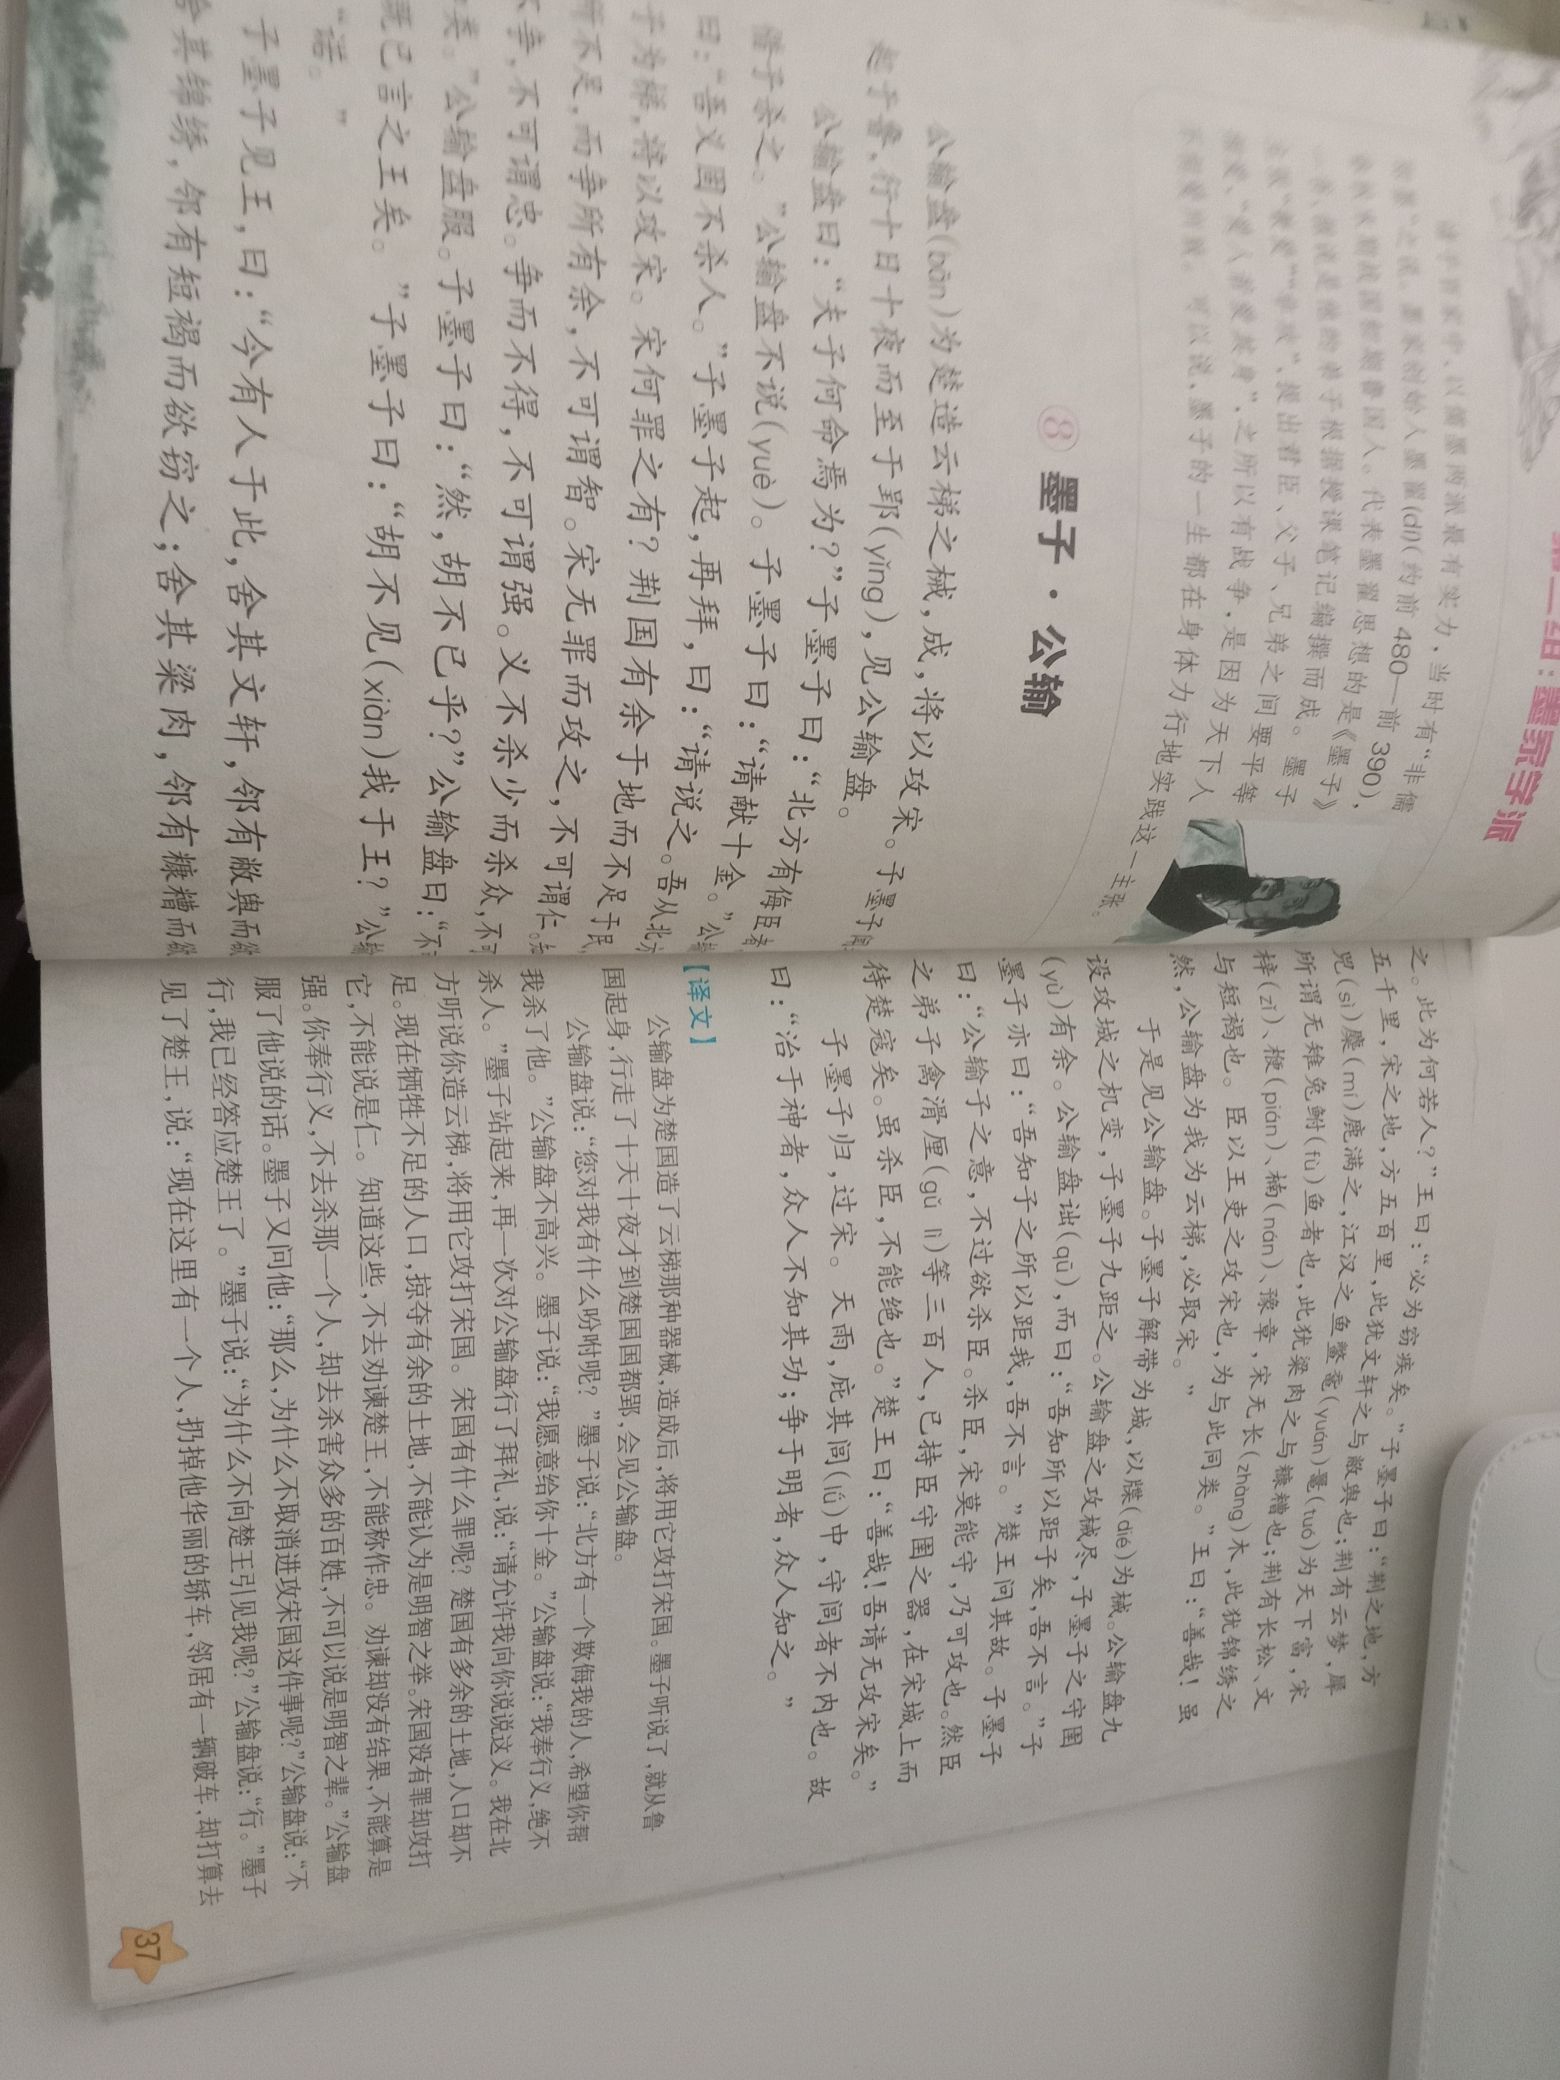 第二组：墨家学派
诸子百家中，以儒墨两派最有实力，当时有“非儒
即墨”之说。墨家创始人墨翟(dí)(约前 480—前 390)，
春秋末期战国初期鲁国人。代表墨翟思想的是《墨子》
一书，据说是他的弟子根据授课笔记编撰而成。墨子
主张“兼爱”“非攻”，提出君臣、父子、兄弟之间要平等
相爱，“爱人若爱其身”，之所以有战争，是因为天下人
不相爱所致。可以说，墨子的一生都在身体力行地实践这一主张。
⑧ 墨子·公输
公输盘(bān)为楚造云梯之械，成，将以攻宋。子墨子闻
起于鲁，行十日十夜而至于郢(yǐng)，见公输盘。
公输盘曰：“夫子何命焉为？”子墨子曰：“北方有侮臣者
借子杀之。”公输盘不说(yuè)。子墨子曰：“请献十金。”公输
曰：“吾义固不杀人。”子墨子起，再拜，曰：“请说之。吾从北方
子为梯，将以攻宋。宋何罪之有？荆国有余于地而不足于民，
所不足，而争所有余，不可谓智。宋无罪而攻之，不可谓仁。知
不争，不可谓忠。争而不得，不可谓强。义不杀少而杀众，不可
类。”公输盘服。子墨子曰：“然，胡不已乎？”公输盘曰：“不
既已言之王矣。”子墨子曰：“胡不见(xiàn)我于王？”公输
“诺。”
子墨子见王，曰：“今有人于此，舍其文轩，邻有敝舆而欲
舍其锦绣，邻有短褐而欲窃之；舍其粱肉，邻有糠糟而欲
之。此为何若人？”王曰：“必为窃疾矣。”子墨子曰：“荆之地，方
五千里，宋之地，方五百里，此犹文轩之与敝舆也；荆有云梦，犀
兕(sì)麋(mí)鹿满之，江汉之鱼鳖鼋(yuán)鼍(tuó)为天下富，宋
所谓无雉兔鲋(fù)鱼者也，此犹粱肉之与糠糟也；荆有长松、文
梓(zǐ)、楩(pián)、楠(nán)、豫章，宋无长(zhàng)木，此犹锦绣之
与短褐也。臣以王吏之攻宋也，为与此同类。”王曰：“善哉！虽
然，公输盘为我为云梯，必取宋。”
于是见公输盘。子墨子解带为城，以牒(dié)为械。公输盘九
设攻城之机变，子墨子九距之。公输盘之攻械尽，子墨子之守圉
(yù)有余。公输盘诎(qū)，而曰：“吾知所以距子矣，吾不言。”子
墨子亦曰：“吾知子之所以距我，吾不言。”楚王问其故。子墨子
曰：“公输子之意，不过欲杀臣。杀臣，宋莫能守，乃可攻也。然臣
之弟子禽滑厘(gǔ lí)等三百人，已持臣守圉之器，在宋城上而
待楚寇矣。虽杀臣，不能绝也。”楚王曰：“善哉！吾请无攻宋矣。”
子墨子归，过宋。天雨，庇其闾(lǘ)中，守闾者不内也。故
曰：“治于神者，众人不知其功；争于明者，众人知之。”
【译文】
公输盘为楚国造了云梯那种器械，造成后，将用它攻打宋国。墨子听说了，就从鲁
国起身，行走了十天十夜才到楚国国都郢，会见公输盘。
公输盘说：“您对我有什么吩咐呢？”墨子说：“北方有一个欺侮我的人，希望你帮
我杀了他。”公输盘不高兴。墨子说：“我愿意给你十金。”公输盘说：“我奉行义，绝不
杀人。”墨子站起来，再一次对公输盘行了拜礼，说：“请允许我向你说说这义。我在北
方听说你造云梯，将用它攻打宋国。宋国有什么罪呢？楚国有多余的土地，人口却不
足。现在牺牲不足的人口，掠夺有余的土地，不能认为是明智之举。宋国没有罪却攻打
它，不能说是仁。知道这些，不去劝谏楚王，不能称作忠。劝谏却没有结果，不能算是
强。你奉行义，不去杀那一个人，却去杀害众多的百姓，不可以说是明智之辈。”公输盘
服了他说的话。墨子又问他：“那么，为什么不取消进攻宋国这件事呢？”公输盘说：“不
行，我已经答应楚王了。”墨子说：“为什么不向楚王引见我呢？”公输盘说：“行。”墨子
见了楚王，说：“现在这里有一个人，扔掉他华丽的轿车，邻居有一辆破车，却打算去
37